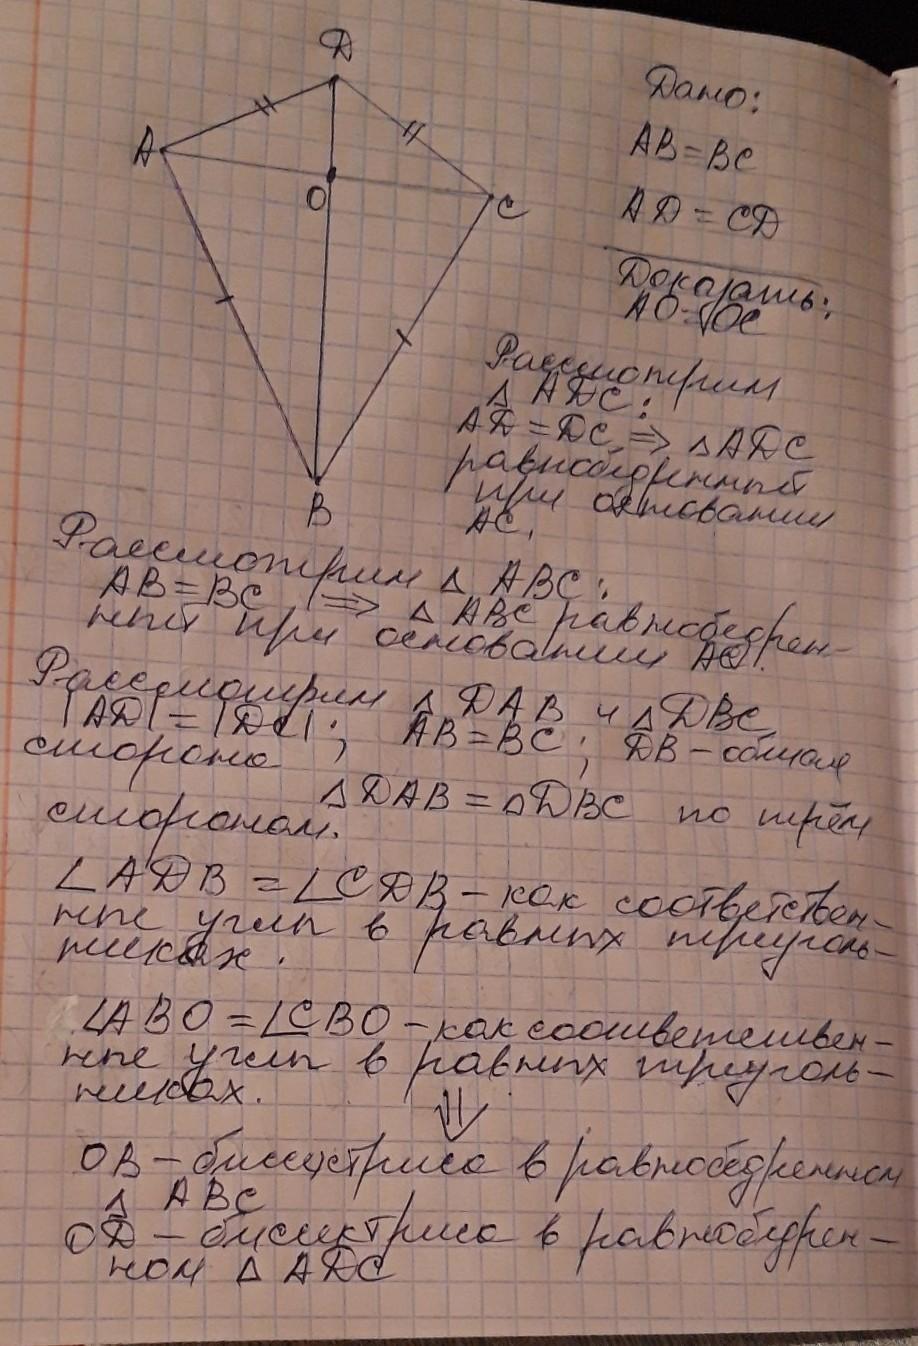 D
A
O
C
B
Дано:
AB=BC
AD=CD
Доказать:
AO=OC
Рассмотрим
△ ADC:
AD=DC ⇒ △ADC
равнобедренный
при основании
AC.
Рассмотрим △ ABC:
AB=BC ⇒ △ ABC равнобедрен-
ный при основании AC.
Рассмотрим △ DAB и △DBC
|AD|=|DC|; AB=BC; DB-общая
сторона
△DAB=△DBC по трём
сторонам.
∠ADB=∠CDB-как соответствен-
ные углы в равных треуголь-
никах.
∠ABO=∠CBO-как соответствен-
ные углы в равных треуголь-
никах.
⇓
OB-биссектриса в равнобедренном
△ ABC
OD-биссектриса в равнобедрен-
ном △ ADC